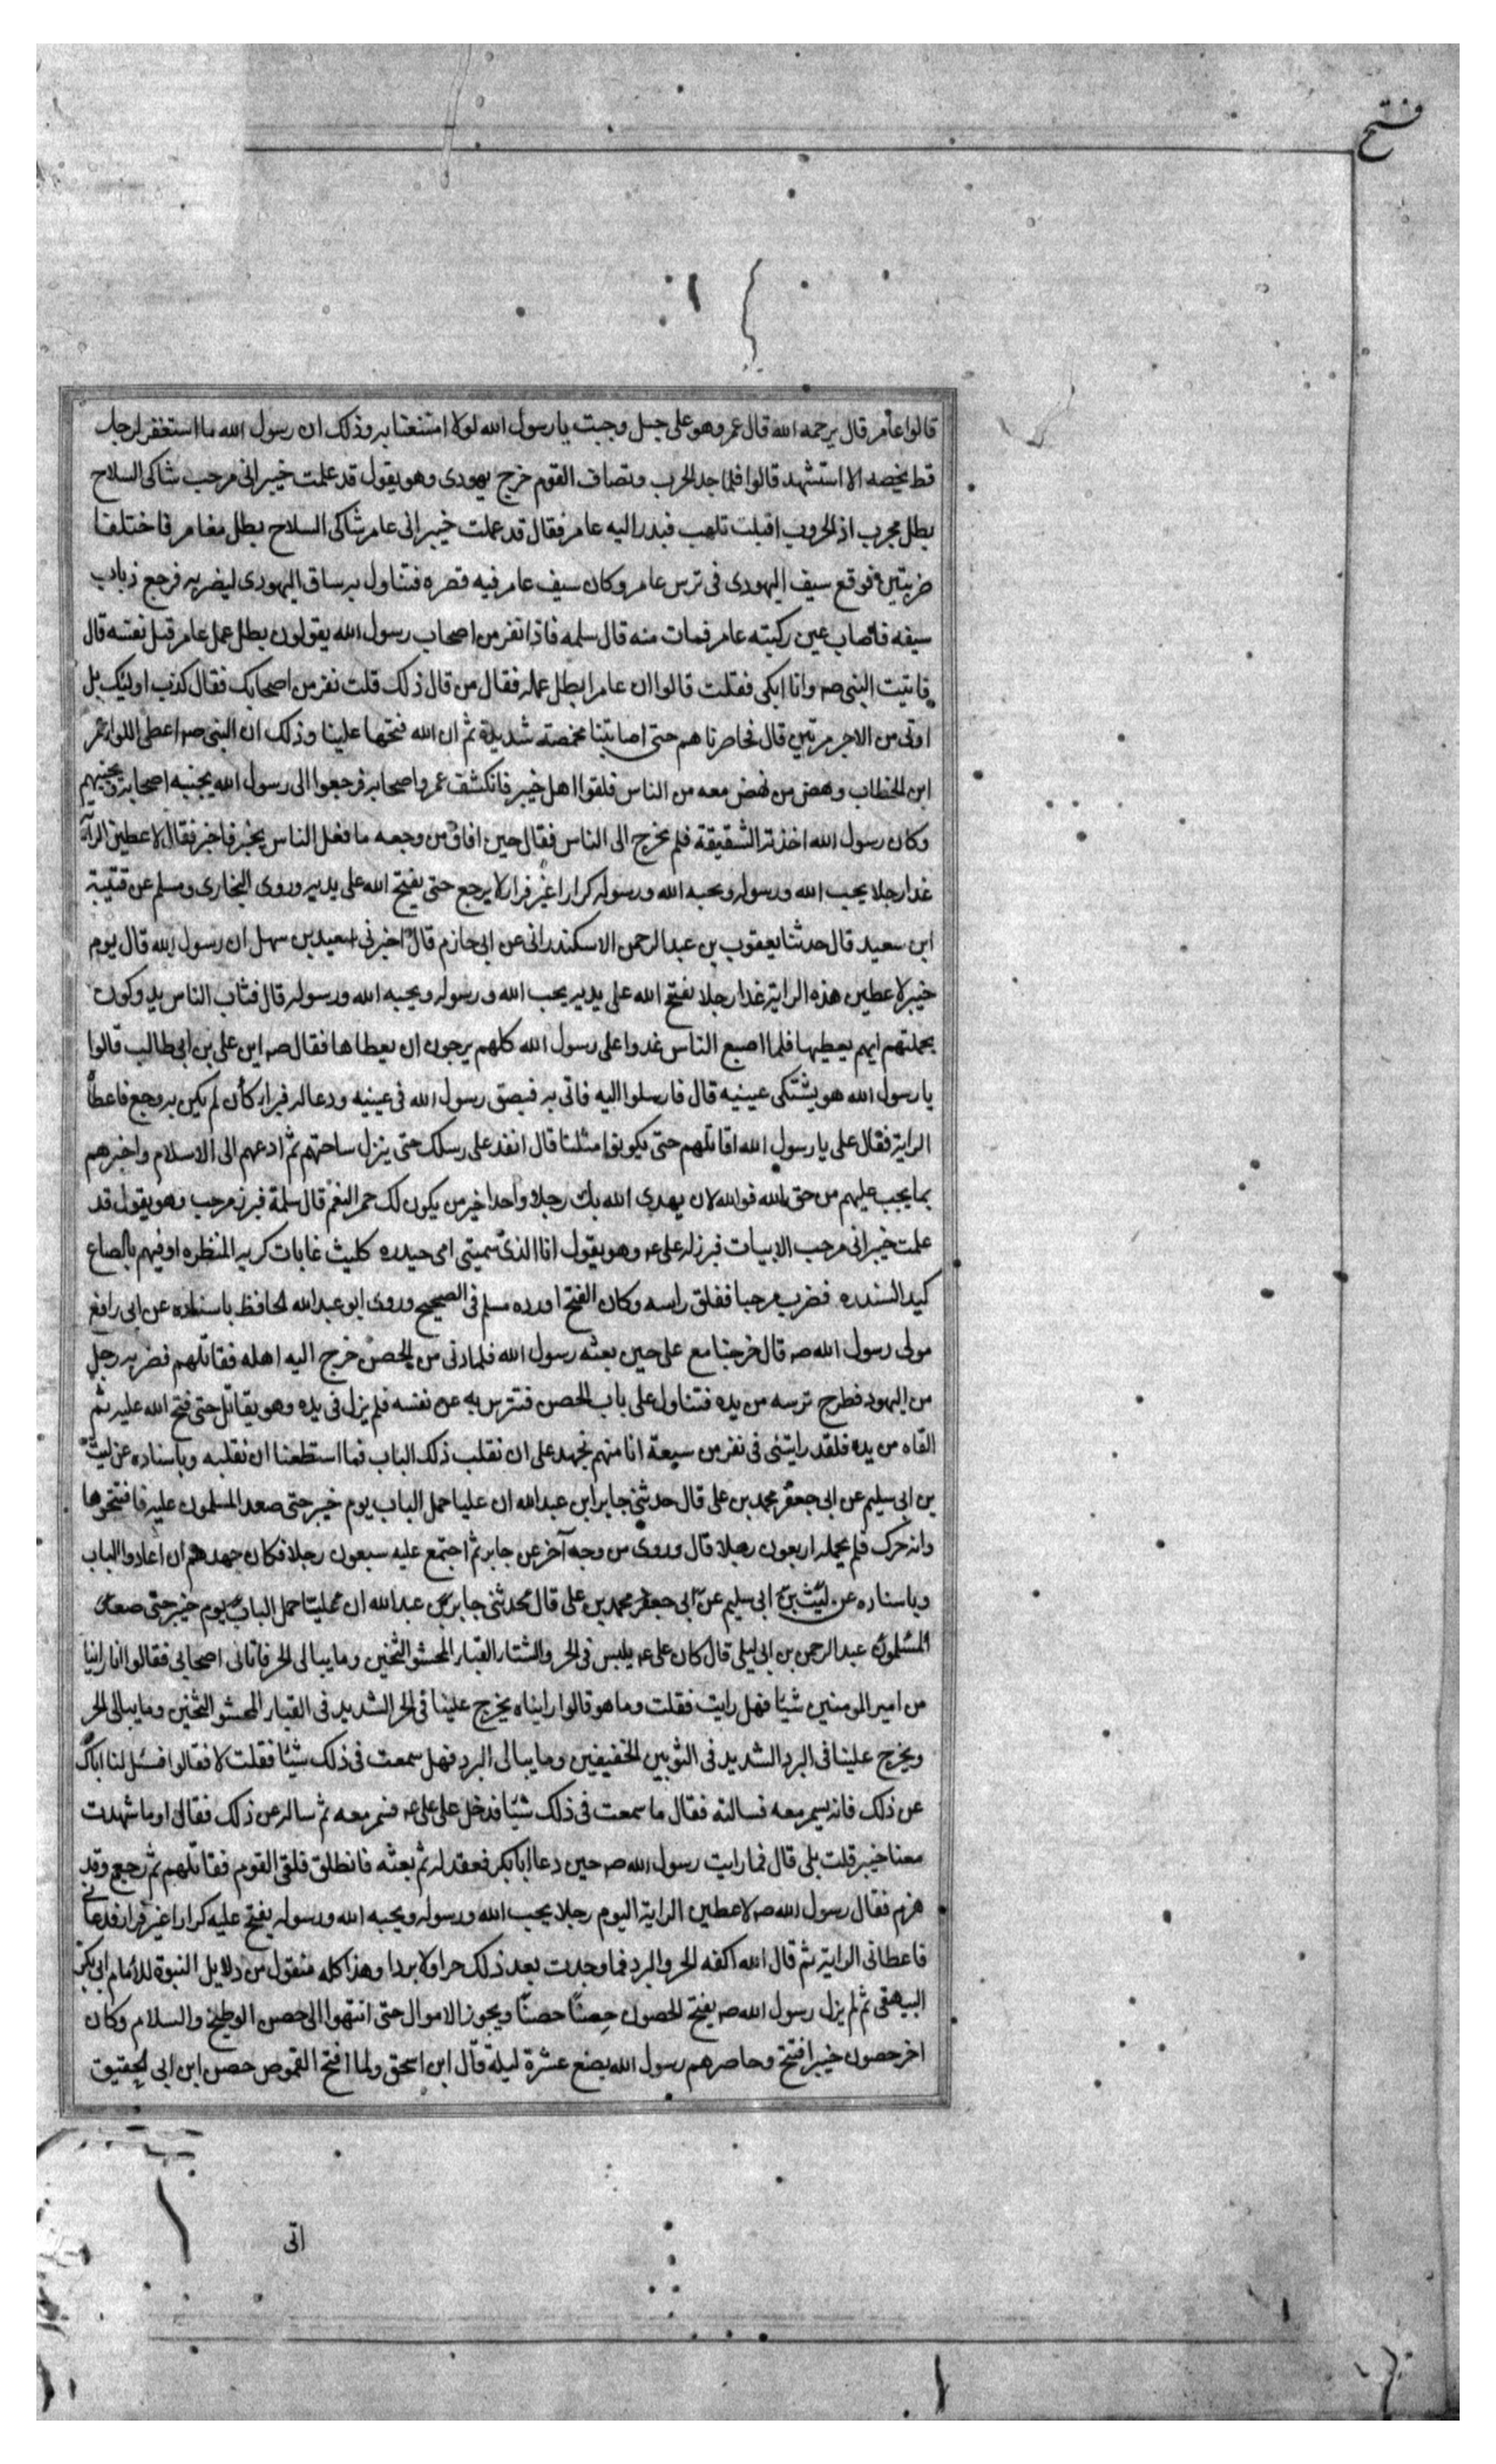 فتح
قالوا عامر قال يرحمه الله قال عمر وهو على جمل وجبت يا رسول الله لولا امتنعتنا به وذلك ان رسول الله ما استغفر لرجل
قط يخصه الا استشهد قالوا فلما جد الحرب وتصاف القوم خرج يهودى وهو يقول قد علمت خيبر انى مرحب شاكى السلاح
بطل مجرب اذ الحروب اقبلت تلهب فبدر اليه عامر فقال قد علمت خيبر انى عامر شاكى السلاح بطل مغامر فاختلفا
ضربتين فوقع سيف اليهودى فى ترس عامر وكان سيف عامر فيه قصره فتناول به ساق اليهودى ليضربه فرجع ذباب
سيفه فاصاب عين ركبته عامر فمات منه قال سلمه فاذا نفر من اصحاب رسول الله يقولون بطل عمل عامر قتل نفسه قال
فاتيت النبى صه وانا ابكى فقلت قالوا ان عامرا بطل عمله فقال من قال ذلك قلت نفر من اصحابك فقال كذب اوليك بل
اوتى من الاجر مرتين قال فحاصرناهم حتى اصابتنا مخمصة شديدة ثم ان الله فتحها علينا وذلك ان النبى صه اعطى اللواء عمر
ابن الخطاب ونهض من نهض معه من الناس فلقوا اهل خيبر فانكشف عمر واصحابه فرجعوا الى رسول الله يجنبه اصحابه ويجنبهم
وكان رسول الله اخذته الشقيقة فلم يخرج الى الناس فقال حين افاق من وجعه ما فعل الناس بخيبر فاخبر فقال لاعطين الراية
غدا رجلا يحب الله ورسوله ويحبه الله ورسوله كرارا غير فرار لا يرجع حتى يفتح الله على يديه وروى البخارى ومسلم عن قتيبة
ابن سعيد قال حدثنا يعقوب بن عبد الرحمن الاسكندرانى عن ابى حازم قال اخبرنى سعيد بن سهل ان رسول الله قال يوم
خيبر لاعطين هذه الراية غدا رجلا يفتح الله على يديه يحب الله ورسوله ويحبه الله ورسوله قال فثاب الناس يدوكون
بجملتهم ايهم يعطيها فلما اصبح الناس غدوا على رسول الله كلهم يرجون ان يعطاها فقال صه اين على بن ابى طالب قالوا
يا رسول الله هو يشتكى عينيه قال فارسلوا اليه فاتى به فبصق رسول الله فى عينيه ودعا له فبرا كان لم يكن به وجع فاعطاه
الراية فقال على يا رسول الله اقاتلهم حتى يكونوا مثلنا قال انفذ على رسلك حتى ينزل ساحتهم ثم ادعهم الى الاسلام واخبرهم
بما يجب عليهم من حق الله فوالله لان يهدى الله بك رجلا واحدا خير من يكون لك حمر النعم قال سلمة فبرز مرحب وهو يقول قد
علمت خيبر انى مرحب الابيات فبرز له على عه وهو يقول انا الذى سميتنى امى حيدره كليث غابات كريه المنظره اوفيهم بالصاع
كيد السندره فضرب مرحبا ففلق راسه وكان الفتح اورده مسلم فى الصحيح وروى ابو عبد الله الحافظ باسناده عن ابى رافع
مولى رسول الله صه قال خرجنا مع على حين بعثه رسول الله فلما دنى من الحصن خرج اليه اهله فقاتلهم فضربه رجل
من اليهود فطرح ترسه من يده فتناول على باب الحصن فتترس به عن نفسه فلم يزل فى يده وهو يقاتل حتى فتح الله عليه ثم
القاه من يده فلقد رايتنى فى نفر من سبعة انا منهم نجهد على ان نقلب ذلك الباب فما استطعنا ان نقلبه وباسناده عن ليث
بن ابى سليم عن ابى جعفر محمد بن على قال حدثنى جابر ابن عبد الله ان عليا حمل الباب يوم خيبر حتى صعد المسلمون عليه فافتتحوها
وانه حرك فلم يحمله اربعون رجلا قال وروى من وجه آخر عن جابر ثم اجتمع عليه سبعون رجلا فكان جهدهم ان اعادوا الباب
وباسناده عن ليث بن ابى سليم عن ابى جعفر محمد بن على قال حدثنى جابر بن عبد الله ان عليا حمل الباب يوم خيبر حتى صعد
المسلمون عبد الرحمن بن ابى ليلى قال كان على عه يلبس فى الحر والشتاء القباء المحشو الثخين وما يبالى الحر فاتانى اصحابى فقالوا انا راينا
من امير المومنين شيئا فهل رايت فقلت وما هو قالوا رايناه يخرج علينا فى الحر الشديد فى القباء المحشو الثخين وما يبالى الحر
ويخرج علينا فى البرد الشديد فى الثوبين الخفيفين وما يبالى البرد فهل سمعت فى ذلك شيئا فقلت لا فقالوا فسئل لنا اباك
عن ذلك فانه يسمر معه فسالته فقال ما سمعت فى ذلك شيئا فدخل على على عه فسمر معه ثم ساله عن ذلك فقال اوما شهدت
معنا خيبر قلت بلى قال فما رايت رسول الله صه حين دعا ابا بكر فعقد له ثم بعثه فانطلق فلقى القوم فقاتلهم ثم رجع وقد
هزم فقال رسول الله صه لاعطين الراية اليوم رجلا يحب الله ورسوله ويحبه الله ورسوله يفتح عليه كرارا غير فرار فدعانى
فاعطانى الراية ثم قال الله اكفه الحر والبرد فما وجدت بعد ذلك حرا ولا بردا وهذا كله منقول من دلايل النبوة للامام ابى بكر
البيهقى ثم لم يزل رسول الله صه يفتح الحصون حصنا حصنا ويحوز الاموال حتى انتهوا الى حصن الوطيح والسلام وكان
اخر حصون خيبر افتتح وحاصرهم رسول الله بضع عشرة ليلة قال ابن اسحق ولما افتح القموص حصن ابن ابى الحقيق
اتى